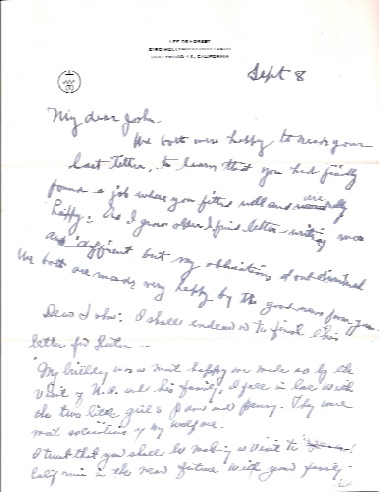 LEE DE FOREST
HOLLYWOOD
CALIFORNIA
Sept 8
My dear John.
We both were happy to hear your
last letter, to learn that you had finally
found a job where you fitted well and are really
happy. As I grow older I find letter-writing more
and difficult but my obligations
We both are made very happy by the good news from you.
Dear John: I shall endeavor to finish this
letter for
My birthday was a most happy one made so by the
visit of and his family. I fell in love with
the two little girls and Penny. They were
most solicitous of my welfare.
I trust that you shall be making a visit to
California in the near future with your family.